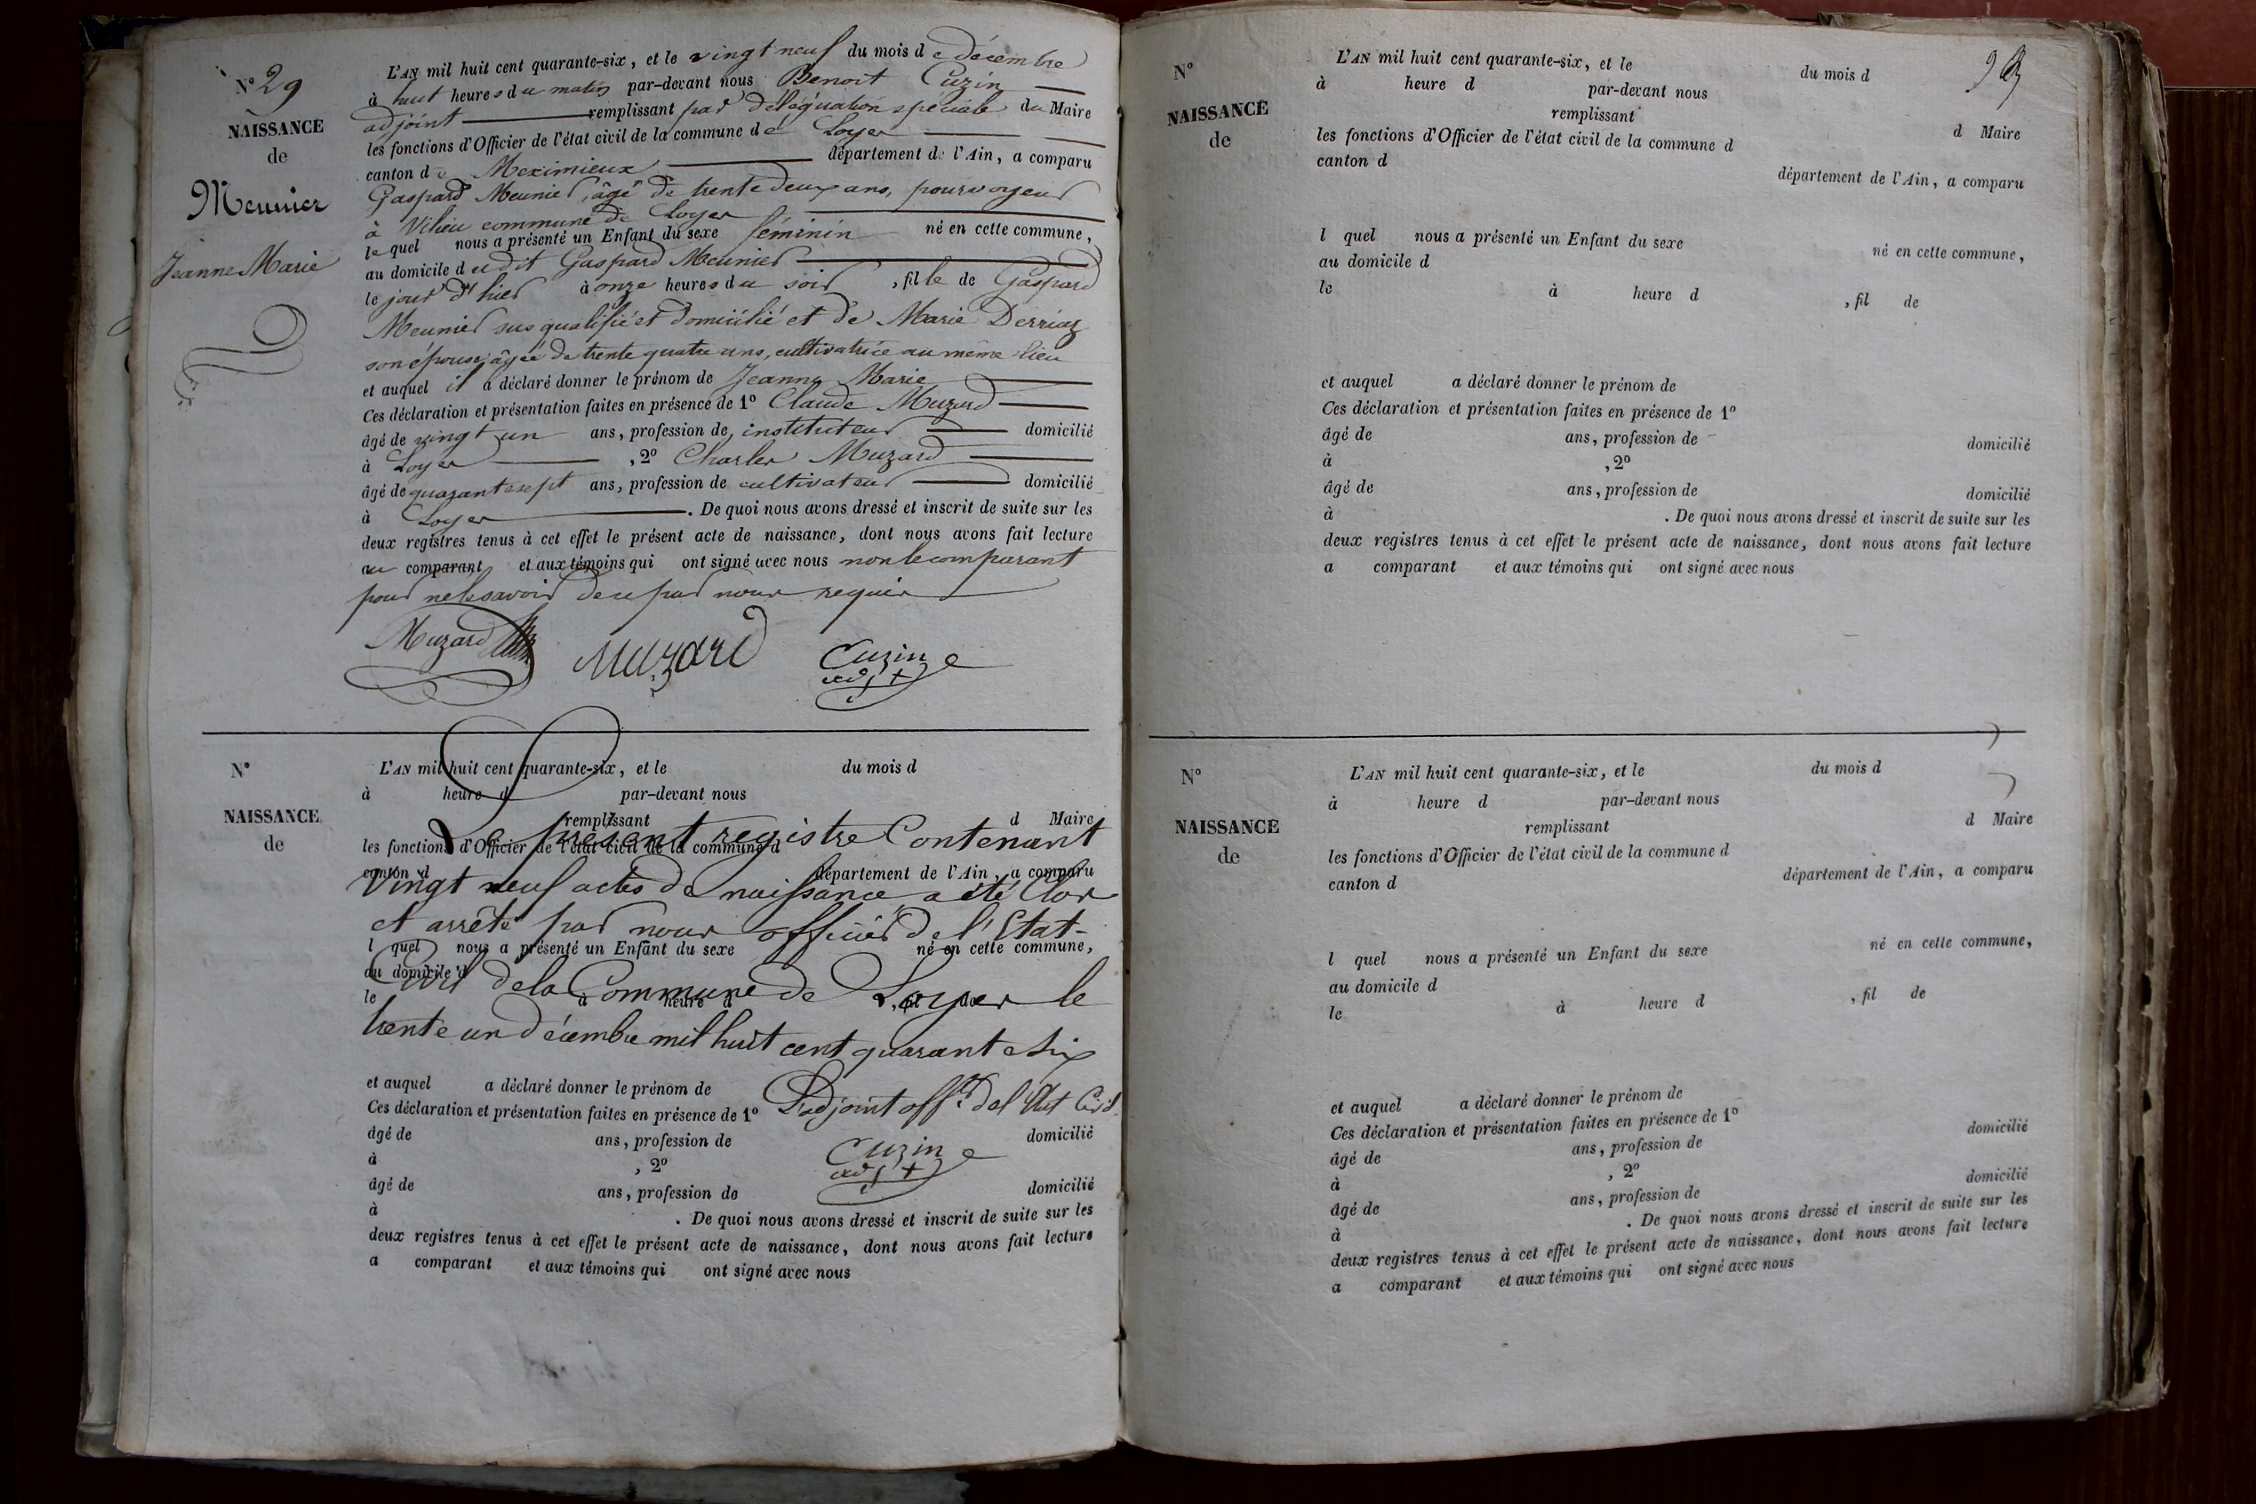 N° 29
NAISSANCE
de
Meunier
Jeanne Marie
L'AN mil huit cent quarante-six, et le vingt neuf du mois de décembre
à huit heures du matin par-devant nous Benoit Cuzin
adjoint remplissant par délégation spéciale du Maire
les fonctions d'Officier de l'état civil de la commune de Loyes
canton de Meximieux département de l'Ain, a comparu
Gaspard Meunier, âgé de trente deux ans, pourvoyeur
à Vilieu commune de Loyes
lequel nous a présenté un Enfant du sexe féminin né en cette commune,
au domicile dudit Gaspard Meunier
le jour d'hier à onze heures du soir, fille de Gaspard
Meunier sus qualifié et domicilié et de Marie Derriaz
son épouse, âgée de trente quatre ans, cultivatrice au même lieu
et auquel il a déclaré donner le prénom de Jeanne Marie
Ces déclaration et présentation faites en présence de 1° Claude Muzard
âgé de vingt un ans, profession de instituteur domicilié
à Loyes, 2° Charles Muzard
âgé de quarante sept ans, profession de cultivateur domicilié
à Loyes. De quoi nous avons dressé et inscrit de suite sur les
deux registres tenus à cet effet le présent acte de naissance, dont nous avons fait lecture
au comparant et aux témoins qui ont signé avec nous non le comparant
pour ne le savoir de ce par nous requis
Muzard Muzard Cuzin
adjt
N°
NAISSANCE
de
L'AN mil huit cent quarante-six, et le du mois d
à heure d par-devant nous
remplissant d Maire
Le présent registre Contenant
les fonctions d'Officier de l'état civil de la commune d
canton d département de l'Ain, a comparu
Vingt neuf actes de naissance a été Clos
et arrêté par nous officier de l'Etat-
l quel nous a présenté un Enfant du sexe né en cette commune,
au domicile d
Civil de la Commune de Loyes le
le à heure d , fil de
trente un décembre mil huit cent quarante six
et auquel a déclaré donner le prénom de
L'adjoint offr. de l'Etat Civil
Ces déclaration et présentation faites en présence de 1°
âgé de ans, profession de domicilié
à , 2° Cuzin
adjt
âgé de ans, profession de domicilié
à . De quoi nous avons dressé et inscrit de suite sur les
deux registres tenus à cet effet le présent acte de naissance, dont nous avons fait lecture
a comparant et aux témoins qui ont signé avec nous
N°
NAISSANCE
de
L'AN mil huit cent quarante-six, et le du mois d
à heure d par-devant nous
remplissant d Maire
les fonctions d'Officier de l'état civil de la commune d
canton d département de l'Ain, a comparu
l quel nous a présenté un Enfant du sexe né en cette commune,
au domicile d
le à heure d , fil de
et auquel a déclaré donner le prénom de
Ces déclaration et présentation faites en présence de 1°
âgé de ans, profession de domicilié
à , 2°
âgé de ans, profession de domicilié
à . De quoi nous avons dressé et inscrit de suite sur les
deux registres tenus à cet effet le présent acte de naissance, dont nous avons fait lecture
a comparant et aux témoins qui ont signé avec nous
N°
NAISSANCE
de
L'AN mil huit cent quarante-six, et le du mois d
à heure d par-devant nous
remplissant d Maire
les fonctions d'Officier de l'état civil de la commune d
canton d département de l'Ain, a comparu
l quel nous a présenté un Enfant du sexe né en cette commune,
au domicile d
le à heure d , fil de
et auquel a déclaré donner le prénom de
Ces déclaration et présentation faites en présence de 1°
âgé de ans, profession de domicilié
à , 2°
âgé de ans, profession de domicilié
à . De quoi nous avons dressé et inscrit de suite sur les
deux registres tenus à cet effet le présent acte de naissance, dont nous avons fait lecture
a comparant et aux témoins qui ont signé avec nous